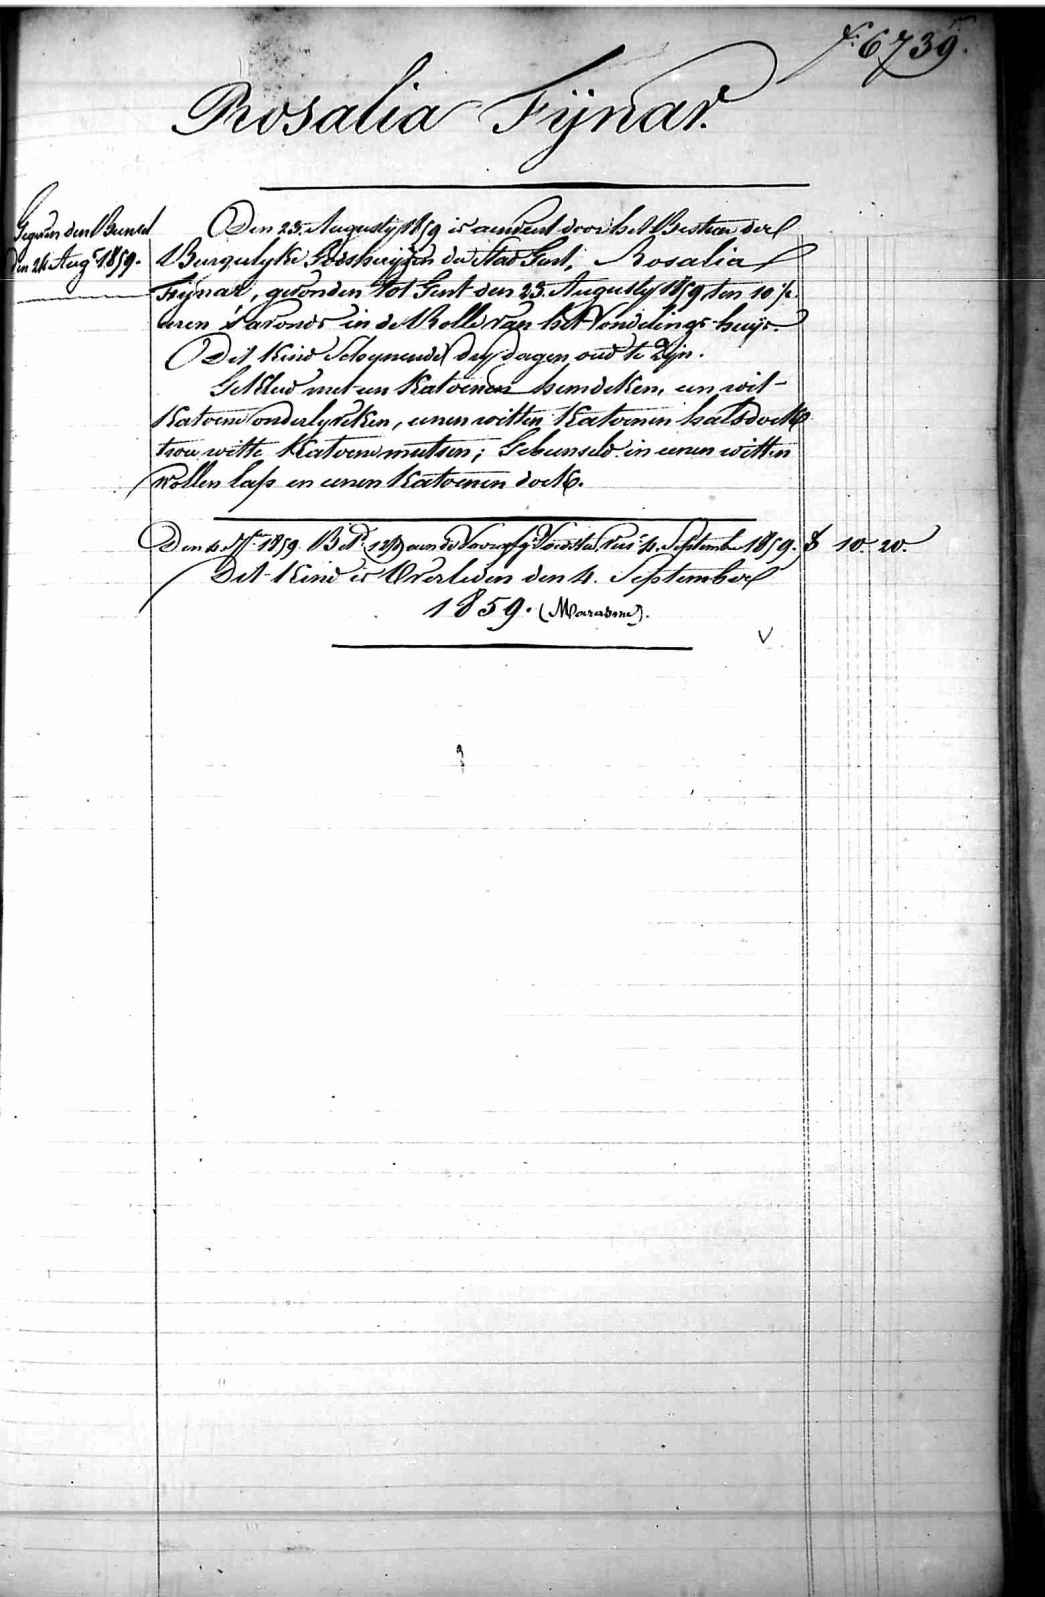 F. 6739.
Rosalia Fijnar.
Gegeven den Bunsel
den 24 Augt 1859.
Den 23. Augusty 1859 is aenveert door het Bestuer der
Burgerlyke Godshuijzen der Stad Gent, Rosalia
Fijnar, gevonden tot Gent den 23. Augusty 1859 ten 10 ½
uren s'avonds in de Rolle van het Vondelings-huijs.
Dit Kind Schynende dry dagen oud te Zyn.
Gekleed met een Katoenen hemdeken, een wit-
Katoene onderlyveken, eenen witten Katoenen halsdoek
twee witte Katoene mutsen; Gebunseld in eenen witten
wollen lap en eenen Katoenen doek.
Den 4 1859. Bet. aen de Voedster 4. September 1859. 10. 20.
Dit Kind is Overleden den 4. September
1859. (Marasme).
V